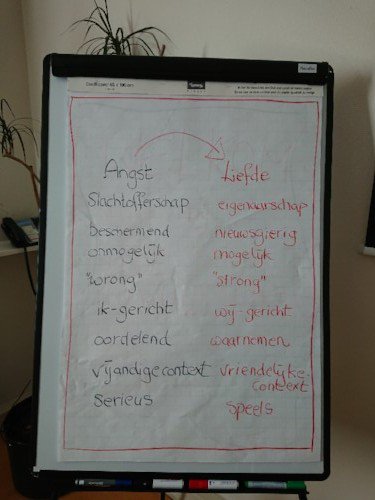 Angst Liefde
Slachtofferschap eigenaarschap
Beschermend nieuwsgierig
onmogelijk mogelijk
"wrong" "strong"
ik-gericht wij-gericht
oordelend waarnemen
vijandige context vriendelijke
context
serieus speels